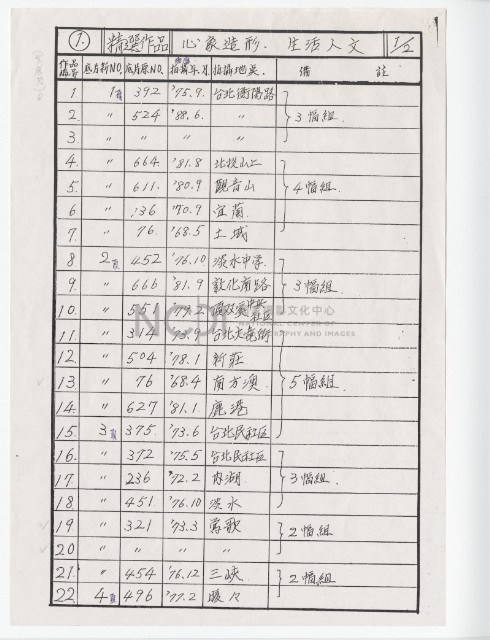 1. 精選作品 心象造形．生活人文 1/2
作品編號 底片新NO. 底片原NO. 拍攝年.月 拍攝地點. 備註
1 1頁 392 '75.9. 台北衡陽路
2. 〃 524 '88.6. 〃 3幅組.
3. 〃 〃 〃 〃
4. 〃 664 '81.8 北投山上
5. 〃 611. '80.9 觀音山 4幅組.
6 〃 136 '70.9 宜蘭.
7 〃 76. '68.5 土城
8 2頁 452 '76.10 淡水中學.
9. 〃 666 '81.9 敦化南路 3幅組.
10. 〃 551 '79.2 社區
11. 〃 314 '73.9 台北
12. 〃 504 '78.1 新莊
13 〃 76 '68.4 南方澳. 5幅組.
14. 〃 627 '81.1. 鹿港
15. 3頁 375. '73.6 台北民社区
16. 〃 372 '75.5 台北民社区
17. 〃 236 '72.2 內湖 3幅組.
18. 〃 451 '76.10 淡水
19 〃 321 '73.3 鶯歌 2幅組.
20 〃 〃 〃 〃
21. 〃 454 '76.12 三峽 2幅組
22. 4頁 496 '77.2 暖々